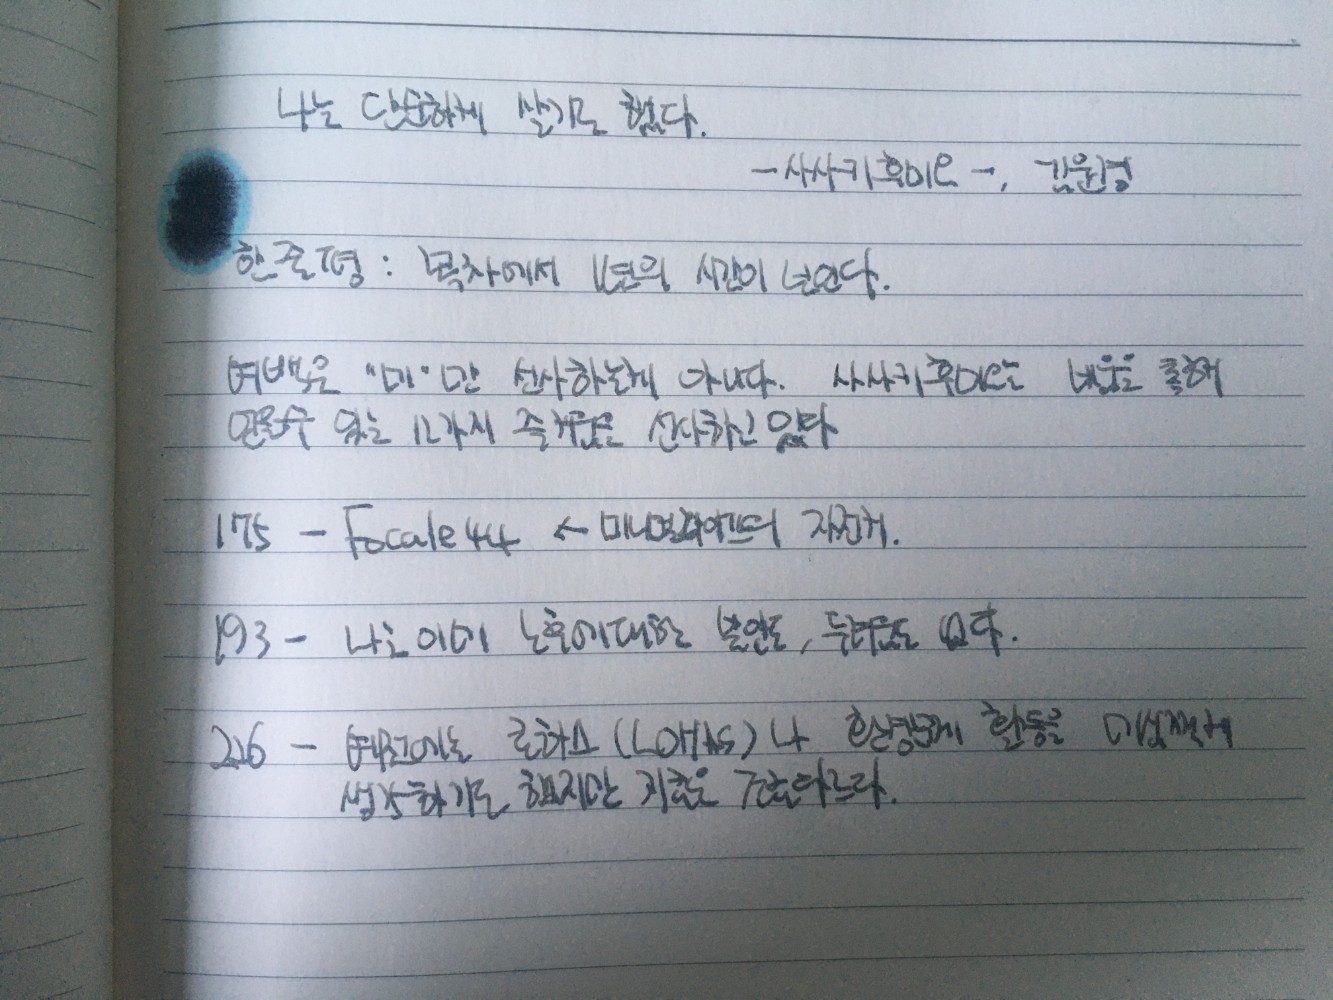 나는 단순하게 살기로 했다.
-사사키 후미오-, 김윤경
한줄평 : 목차에서 1년의 시간이 보인다.
여백은 "미"만 선사하는게 아니다. 사사키후미오는 비움을 통해
얻을수 있는 12가지 즐거움을 선사하고 있다
175 - Focale44 ← 미니멀리스트의 자전거.
193 - 나는 이미 노후에대한 불안도, 두려움도 없다.
226 - 예전에는 로하스 (LOHAS) 나 친환경 활동을
생각하기도 했지만 지금은 다르다.